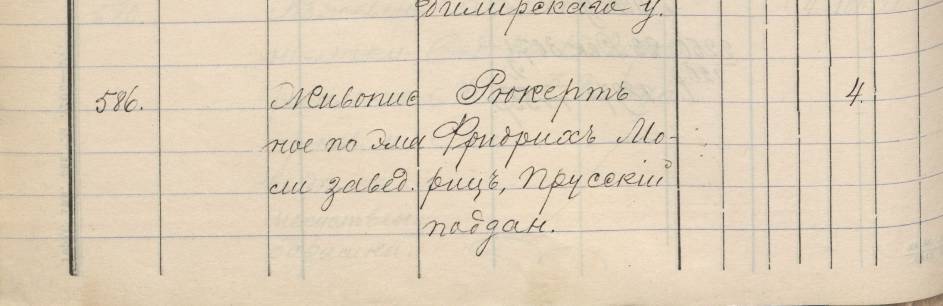 димирскаго у.
586. Живопис Рюкертъ 4.
ное по эма Фридрихъ Мо-
ли завед. рицъ, Прусскій
поддан.